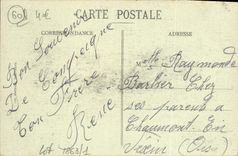 60
40€
CARTE POSTALE
CORRESPONDANCE
ADRESSE
Bon Souvenir
De Compiegne
Ton Frère
René
Mlle Raymonde
Barbier Chez
ses parents a
Chaumont En
Vexin (Oise)